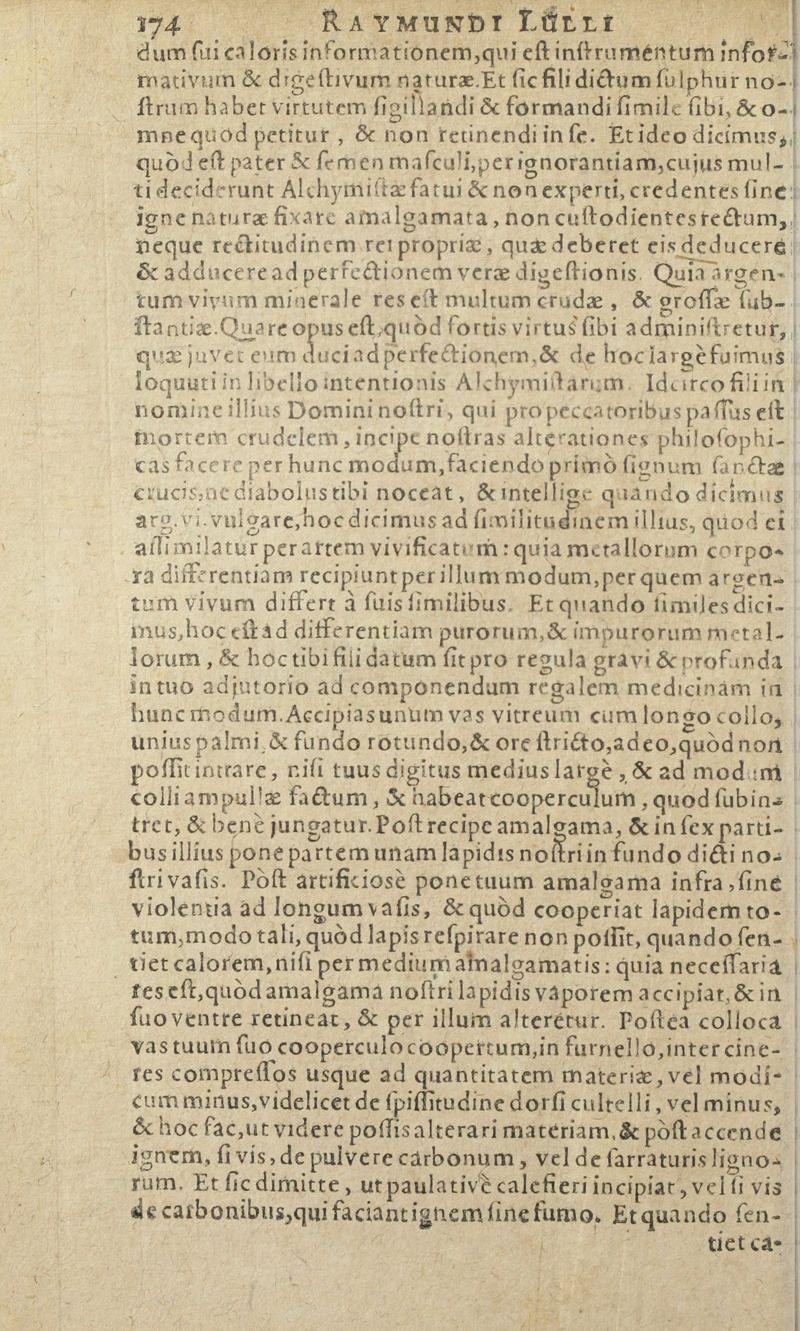 174 RAYMUNDI LULLI
dum ſui caloris informationem, qui eſt inſtrumentum infor-
mativum & digeſtivum naturæ. Et ſic fili dictum ſulphur no-
ſtrum habet virtutem ſigillandi & formandi ſimile ſibi, & o-
mne quod petitur, & non retinendi in ſe. Et ideo dicimus,
quòd eſt pater & ſemen maſculi, per ignorantiam, cujus mul-
ti deciderunt Alchymiſtæ fatui & non experti, credentes ſine
igne naturæ fixare amalgamata, non cuſtodientes rectum,
neque rectitudinem rei propriæ, quæ deberet eis deducere
& adducere ad perfectionem veræ digeſtionis. Quia argen-
tum vivum minerale res eſt multum crudæ, & groſſæ ſub-
ſtantiæ. Quare opus eſt, quòd fortis virtus ſibi adminiſtretur,
quæ juvet eum duci ad perfectionem, & de hoc largè fuimus
loquuti in libello intentionis Alchymiſtarum. Idcirco fili in
nomine illius Domini noſtri, qui pro peccatoribus paſſus eſt
mortem crudelem, incipe noſtras alterationes philoſophi-
cas facere per hunc modum, faciendo primò ſignum ſanctæ
crucis, ne diabolus tibi noceat, & intellige quando dicimus
arg. vi. vulgare, hoc dicimus ad ſimilitudinem illius, quod ei
aſſimilatur per artem vivificatum: quia metallorum corpo-
ra differentiam recipiunt per illum modum, per quem argen-
tum vivum differt à ſuis ſimilibus. Et quando ſimiles dici-
mus, hoc eſt ad differentiam purorum, & impurorum metal-
lorum, & hoc tibi fili datum ſit pro regula gravi & profunda
in tuo adjutorio ad componendum regalem medicinam in
hunc modum. Accipias unum vas vitreum cum longo collo,
unius palmi, & fundo rotundo, & ore ſtricto, adeo, quòd non
poſſit intrare, niſi tuus digitus medius largè, & ad modum
colli ampullæ factum, & habeat cooperculum, quod ſubin-
tret, & benè jungatur. Poſt recipe amalgama, & in ſex parti-
bus illius pone partem unam lapidis noſtri in fundo dicti no-
ſtri vaſis. Pòſt artificiosè pone tuum amalgama infra, ſine
violentia ad longum vaſis, & quòd cooperiat lapidem to-
tum, modo tali, quòd lapis reſpirare non poſſit, quando ſen-
tiet calorem, niſi per medium amalgamatis: quia neceſſaria
res eſt, quòd amalgama noſtri lapidis vaporem accipiat, & in
ſuo ventre retineat, & per illum alteretur. Poſtea colloca
vas tuum ſuo cooperculo coopertum, in furnello, inter cine-
res compreſſos usque ad quantitatem materiæ, vel modi-
cum minus, videlicet de ſpiſſitudine dorſi cultelli, vel minus,
& hoc fac, ut videre poſſis alterari materiam, & pòſt accende
ignem, ſi vis, de pulvere carbonum, vel de ſarraturis ligno-
rum. Et ſic dimitte, ut paulativè calefieri incipiat, vel ſi vis
de carbonibus, qui faciant ignem ſine fumo. Et quando ſen-
tiet ca-